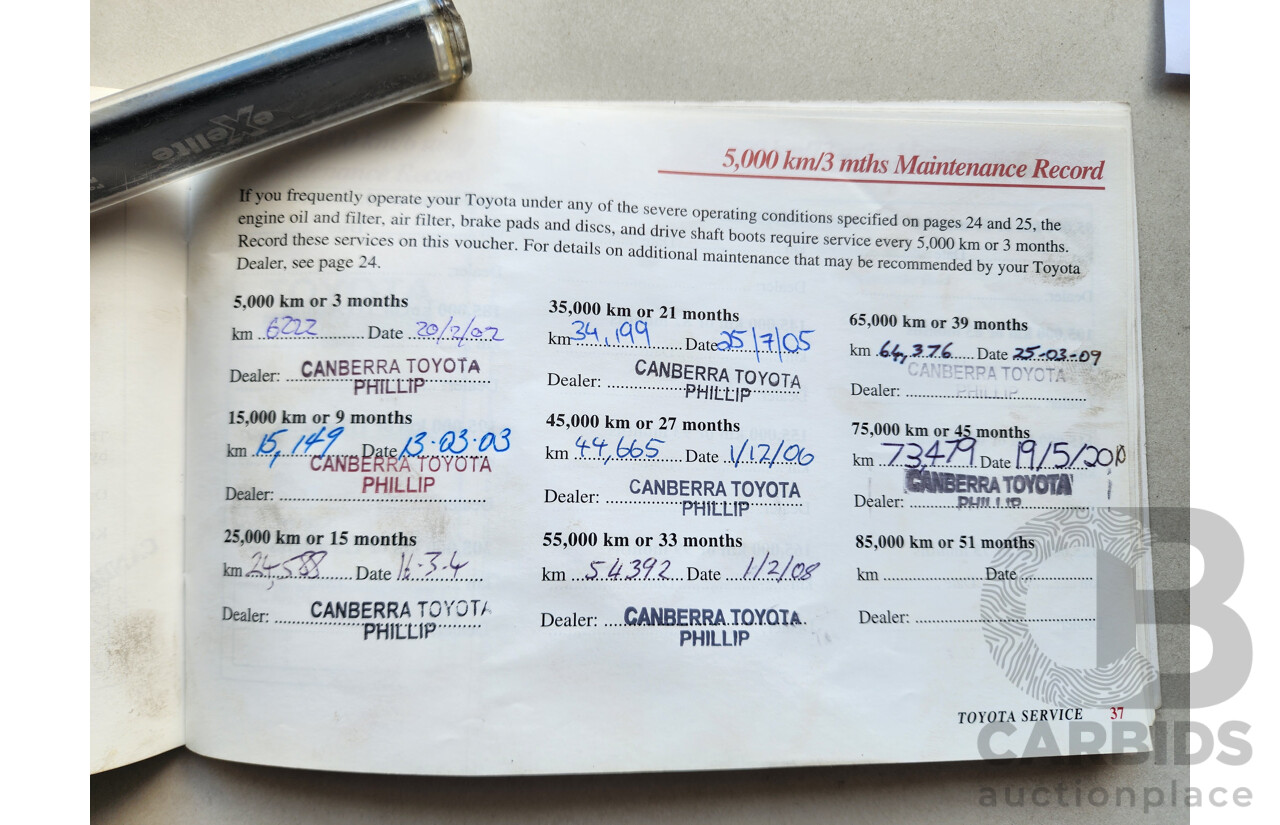 eXelite
5,000 km/3 mths Maintenance Record
If you frequently operate your Toyota under any of the severe operating conditions specified on pages 24 and 25, the
engine oil and filter, air filter, brake pads and discs, and drive shaft boots require service every 5,000 km or 3 months.
Record these services on this voucher. For details on additional maintenance that may be recommended by your Toyota
Dealer, see page 24.
5,000 km or 3 months
km 6222 Date 20/2/02
Dealer: CANBERRA TOYOTA
PHILLIP
15,000 km or 9 months
km 15,149 Date 13·03·03
CANBERRA TOYOTA
Dealer: PHILLIP
25,000 km or 15 months
km 24,588 Date 16·3·4
Dealer: CANBERRA TOYOTA
PHILLIP
35,000 km or 21 months
km 34,199 Date 25/7/05
Dealer: CANBERRA TOYOTA
PHILLIP
45,000 km or 27 months
km 44,665 Date 1/12/06
Dealer: CANBERRA TOYOTA
PHILLIP
55,000 km or 33 months
km 54392 Date 1/2/08
Dealer: CANBERRA TOYOTA
PHILLIP
65,000 km or 39 months
km 64,376 Date 25-03-09
CANBERRA TOYOTA
Dealer: PHILLIP
75,000 km or 45 months
km 73,479 Date 19/5/2010
CANBERRA TOYOTA
Dealer: PHILLIP
85,000 km or 51 months
km Date
Dealer:
TOYOTA SERVICE 37
CB
CARBIDS
auctionplace